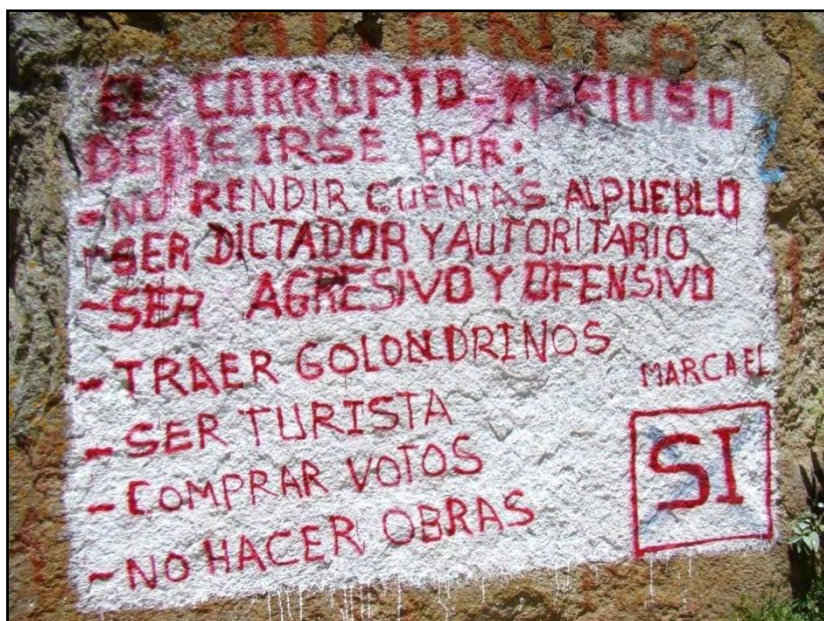 OLLANTA
EL CORRUPTO-MAFIOSO
DEBE IRSE POR:
-NO RENDIR CUENTAS AL PUEBLO
-SER DICTADOR Y AUTORITARIO
-SER AGRESIVO Y OFENSIVO
-TRAER GOLONDRINOS
-SER TURISTA
-COMPRAR VOTOS
-NO HACER OBRAS
MARCA EL
SI